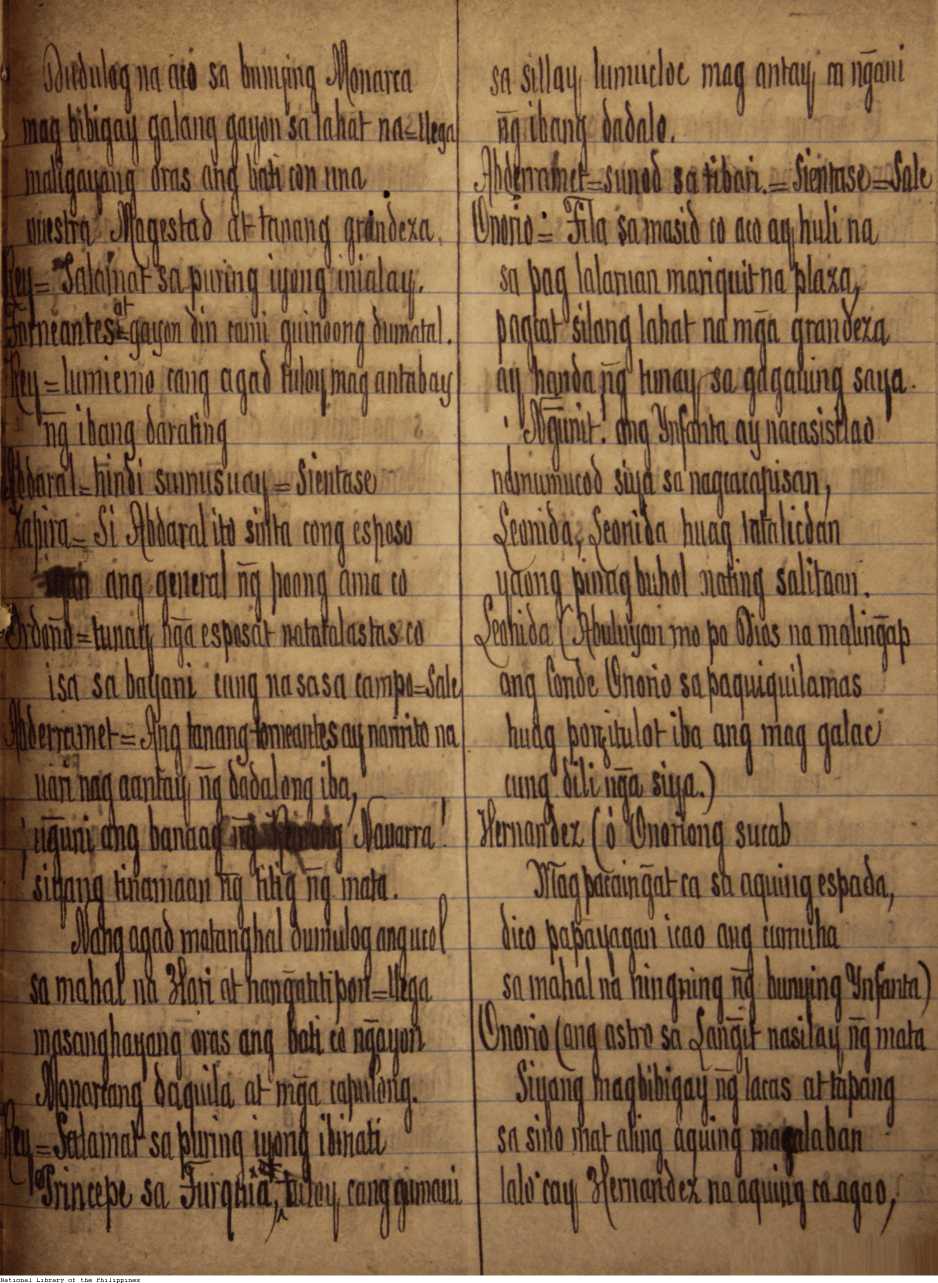 Dudulog na acó sa bunying Monarca
mag bibigay galang gayon sa lahat na=llega
maligayang oras ang bati con una
vuestra Magestad at tanang grandeza.
Rey= Salamat sa puring iyong inialay.
Torneantes= at gayon din cami guinoong dumatal.
Rey=lumicmo cang agad tuloy mag antabay
n̄g ibang darating
Abdaral=hindi sumusuay=Sientase
Zapira= Si Abdaral ito sinta cong esposo
ang general n̄g poong ama co
Ordoño=tunay n̄ga esposat natatalastas co
isa sa bayani cung nasasa campo=Sale
Abderramet= Ang tanang torneantes ay narito na
nag aantay n̄g dadalong iba,
n̄guni ang banaag Navarra!
siyang tinamaan n̄g titig n̄g mata.
Nang agad matanghal dumulog ang ucol
sa mahal na Hari at han̄gatitipon=llega
masanghayang oras ang bati co n̄gayon
Monarcang daquila at m̄ga capulong.
Rey=Salamat sa puring iyong ibinati
Princepe sa Turquia, tuloy cang gumawi
sa sillay, lumucloc mag antay, ca n̄gani
n̄g ibang dadalo.
Abderramet=sunod sa tibari.=Sientase=Sale
Onorio= Tila sa masid co aco ay huli na
sa pag lalaruan mariquit na plaza,
pagcat silang lahat na m̄ga grandeza
ay handa n̄g tunay, sa gagauing saya.
N̄gunit! ang Ynfanta ay nacasistlao
namumucod siya sa nagcacapisan,
Leonida, Leonida huag tatalicdan
yaong pinagbuhol nating salitaan.
Leonida (Abuluyan mo po Dios na malin̄gap
ang Conde Onorio sa paquiquilamas
huag pong itulot iba ang mag galac
cung dili n̄ga siya.)
Hernandez (ó Onoriong sucab
Mag pacain̄gat ca sa aquing espada,
dico papayagan icao ang cumuha
sa mahal na ningning n̄g bunying Ynfanta)
Onorio (ang astro sa Lan̄git nasilay n̄g mata
Siyang magbibigay n̄g lacas at tapang
sa sino mat aling aquing macalaban
lalo cay Hernandez na aquing ca agao,